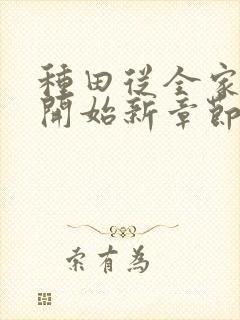 種田從全家
開始新章節
索有為